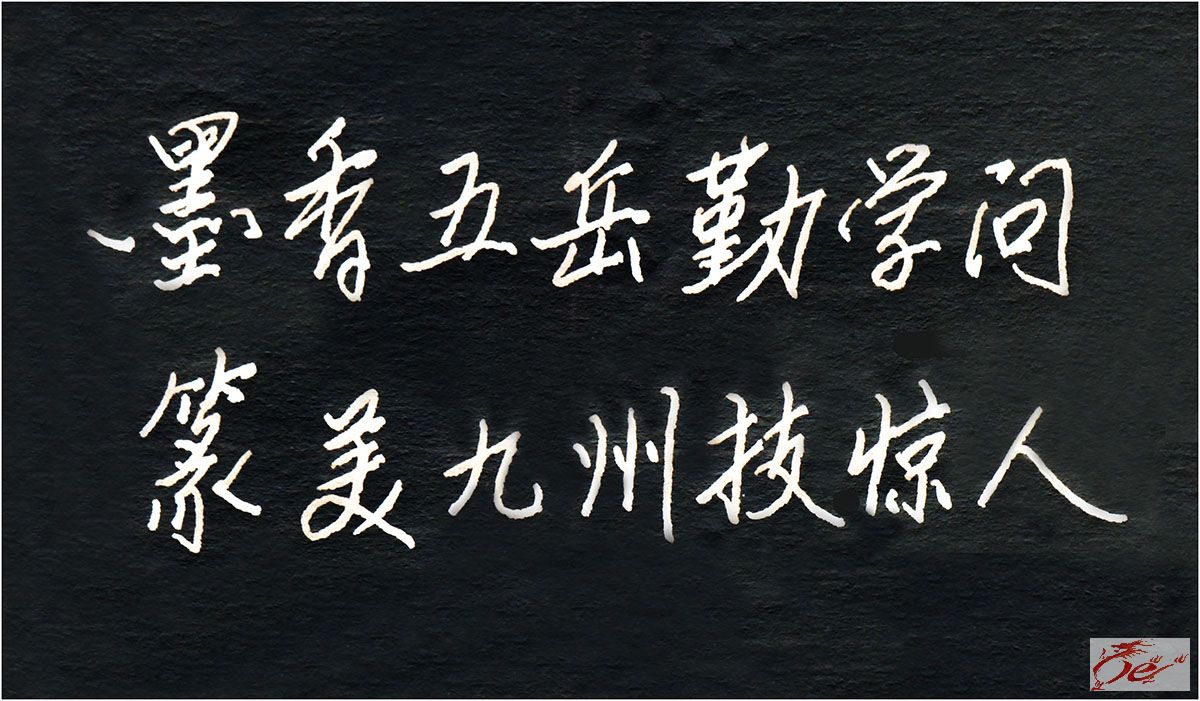 墨香五岳勤学问
篆美九州技惊人